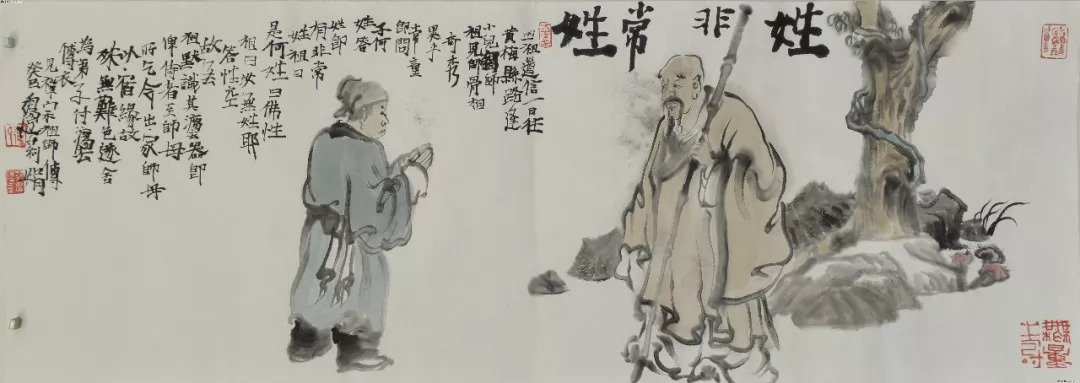 姓非常姓
四祖道信一日往
黄梅縣路逢
小兒即師
祖見師骨相
奇秀
異乎
常童
問
子何
姓答
姓即
有非常
姓祖曰
是何姓曰佛性
祖曰汝無姓耶
答性空
故無
祖默識其法器即
俾侍者至師母
所乞令出家師母
以宿緣故
殊無難色遂舍
為弟子付法
傳衣
見宗祖師傳
癸巳
無量